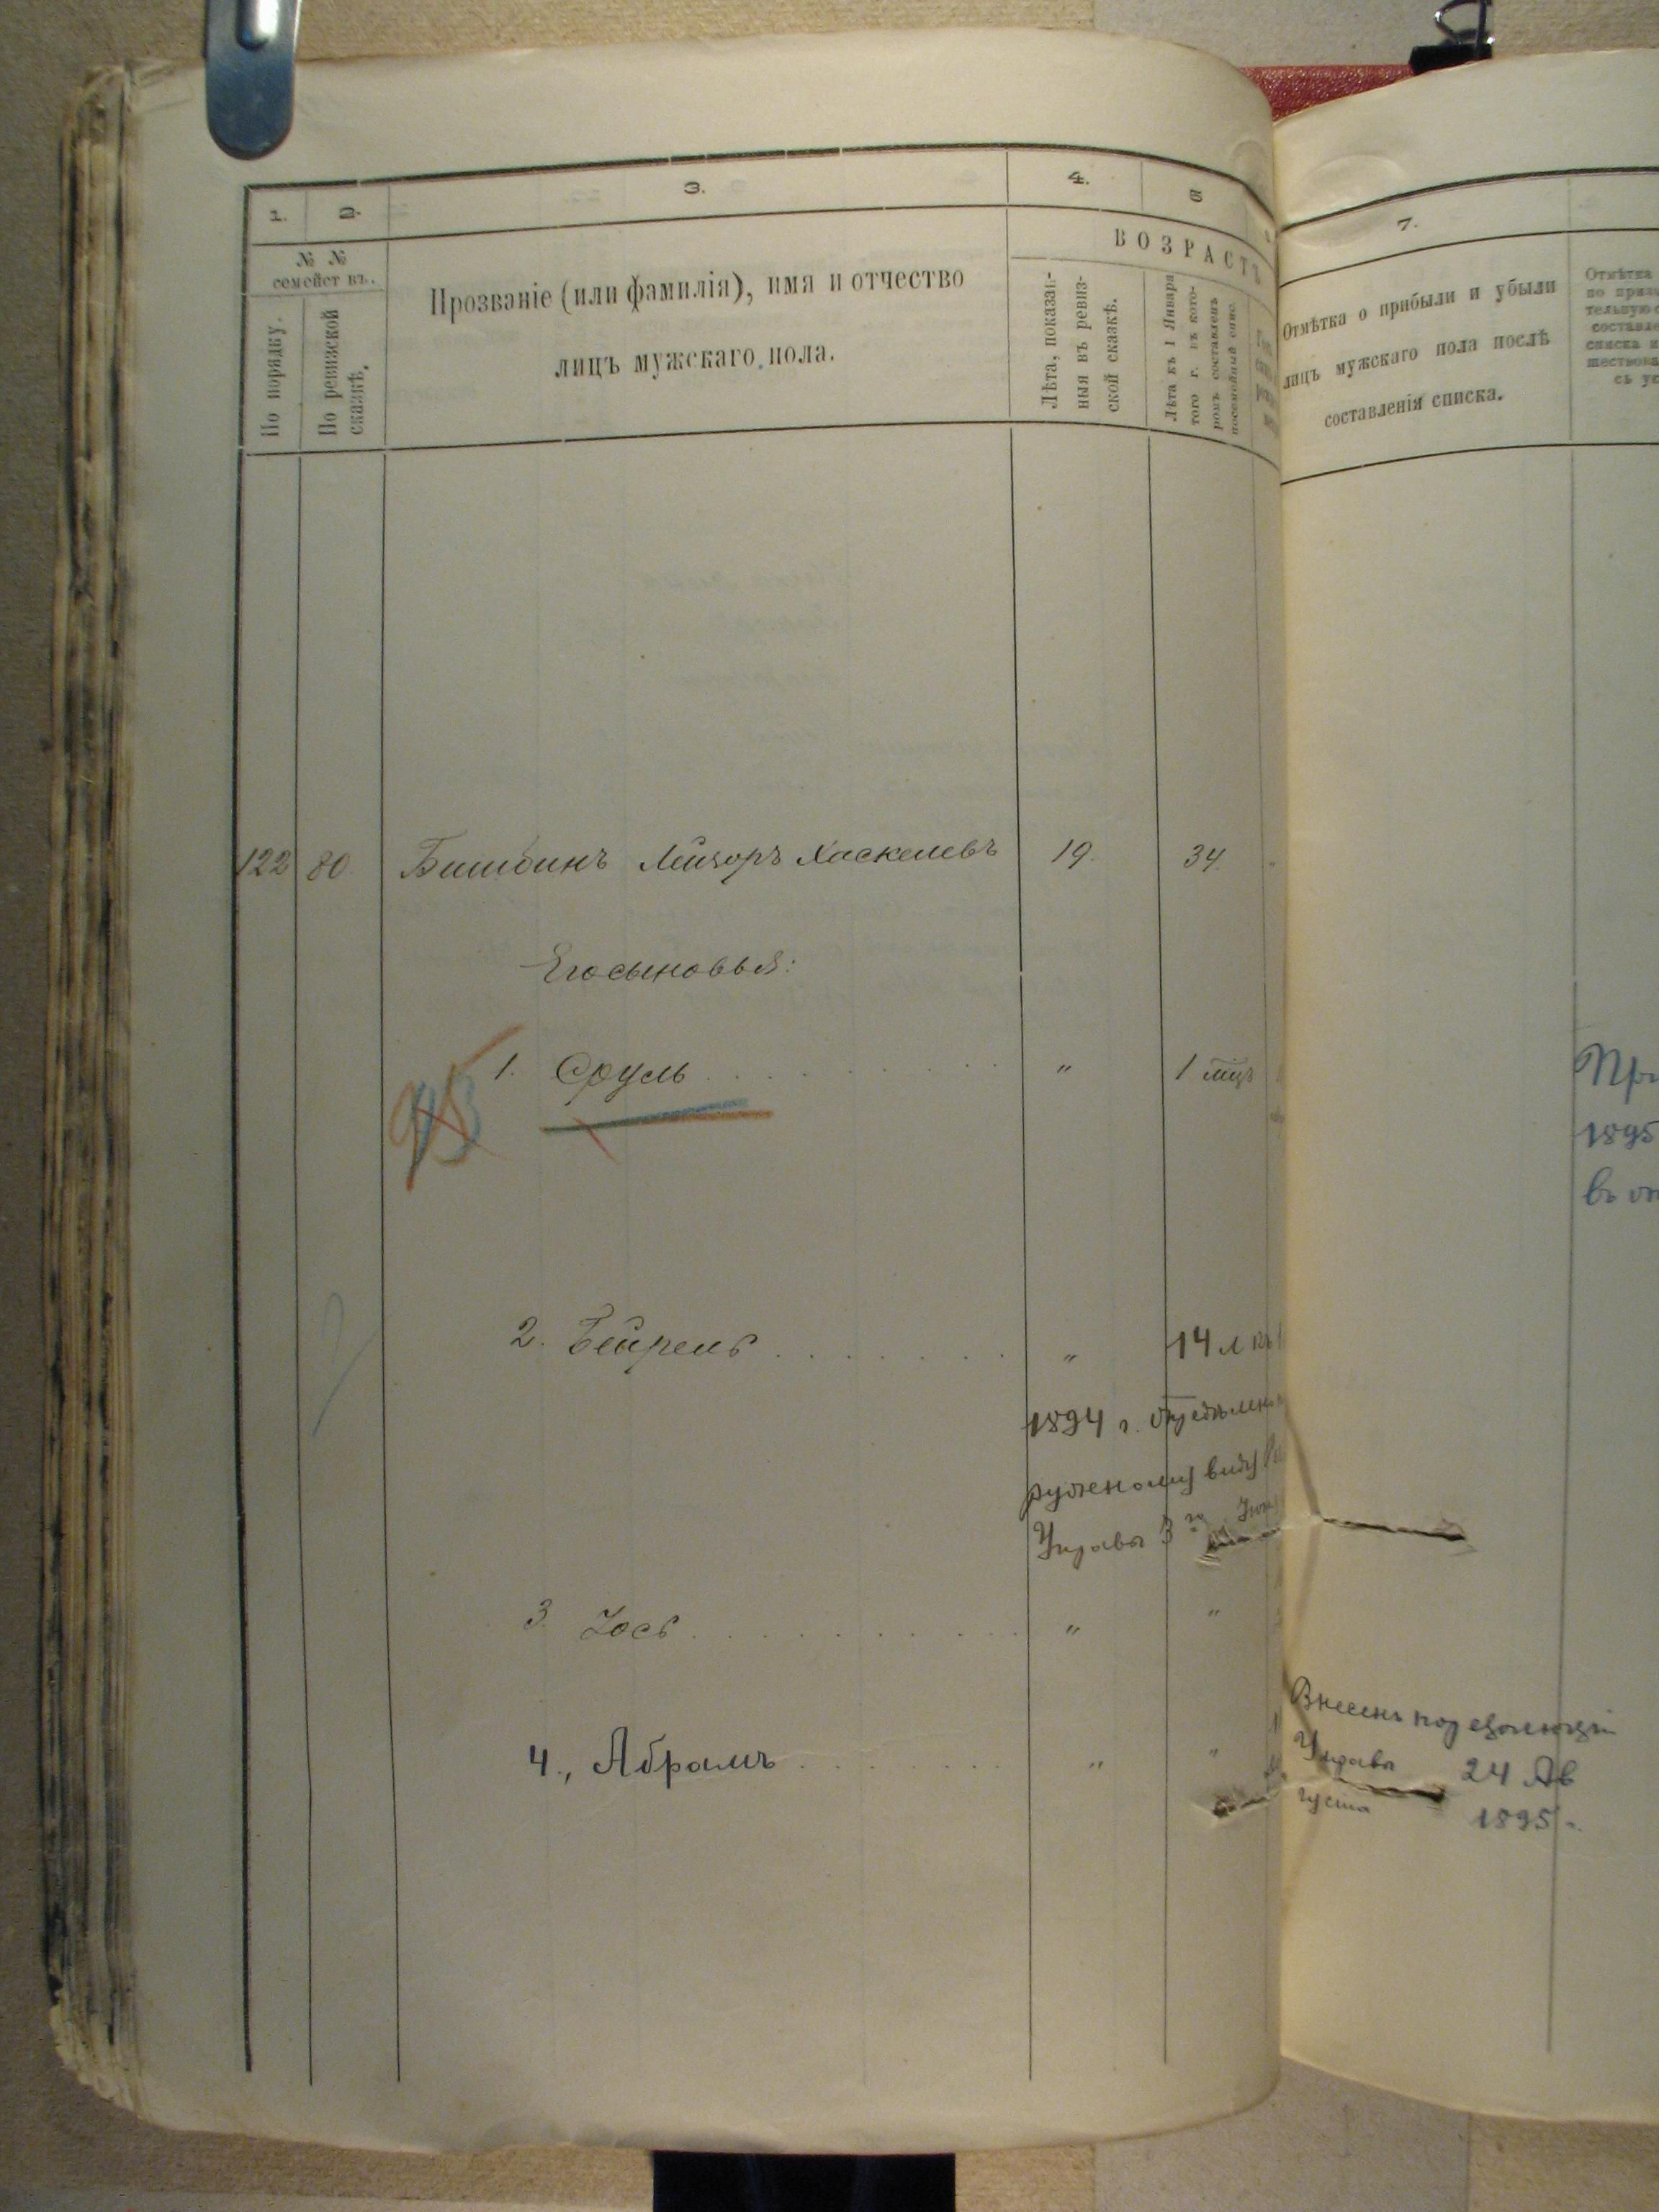 1. 2. 3. 4. 5 7.
№ № семействъ.
По порядку.
По ревизской сказкѣ.
Прозваніе (или фамилія), имя и отчество
лицъ мужскаго пола.
ВОЗРАСТЪ
Лѣта, показан-
ныя въ ревиз-
ской сказкѣ.
Лѣта къ 1 Января
того г. въ кото-
ромъ составленъ
посемейный спис.
Отмѣтка о прибыли и убыли
лицъ мужскаго пола послѣ
составленія списка.
Отмѣтка
по
составле
списка и
122 80. Лейзоръ Хаскелевъ 19. 34.
Его сыновья:
1. Сруль 〃 1 мцъ
95
2. Бейрель 〃 14 л
1894 г.
Управы 3го
3 Іось 〃 〃
4., Абрамъ 〃 〃
При
1895
Внесенъ по резолюціи
Управы 24 Ав
густа 1895 г.